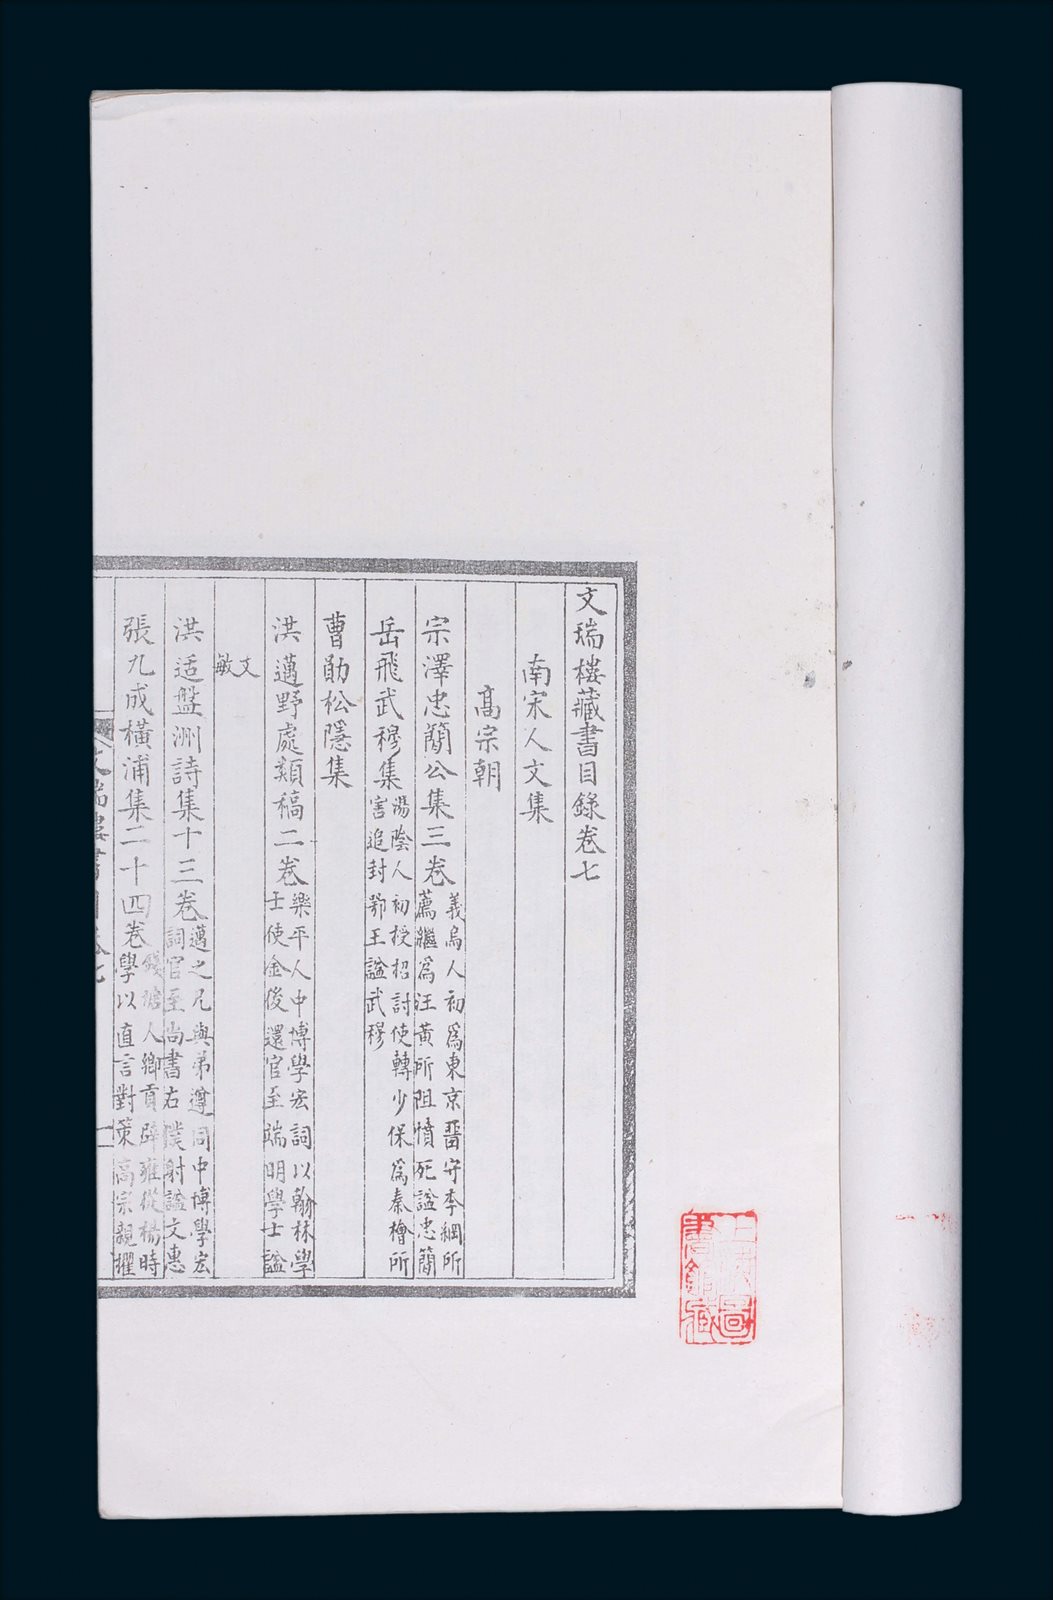 文瑞樓藏書目錄卷七
南宋人文集
高宗朝
宗澤忠簡公集三卷
義烏人初爲東京畱守李綱所
薦繼爲汪黄所阻憤死諡忠簡
岳飛武穆集
湯陰人初授招討使轉少保爲秦檜所
害追封鄂王諡武穆
曹勛松隱集
洪邁野處類稿二卷
樂平人中博學宏詞以翰林學
士使金後還官至端明學士諡
文敏
洪适盤洲詩集十三卷
邁之兄與弟遵同中博學宏
詞官至尚書右僕射諡文惠
張九成橫浦集二十四卷
錢塘人鄉貢辟雍從楊時
學以直言對策高宗親擢
文瑞樓書目卷七
一
上海圖
書館藏